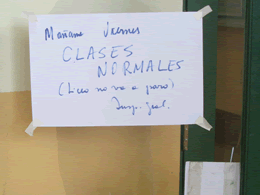 Mañana Viernes
CLASES
NORMALES
(Liceo no va a paro)
Insp. Gral.